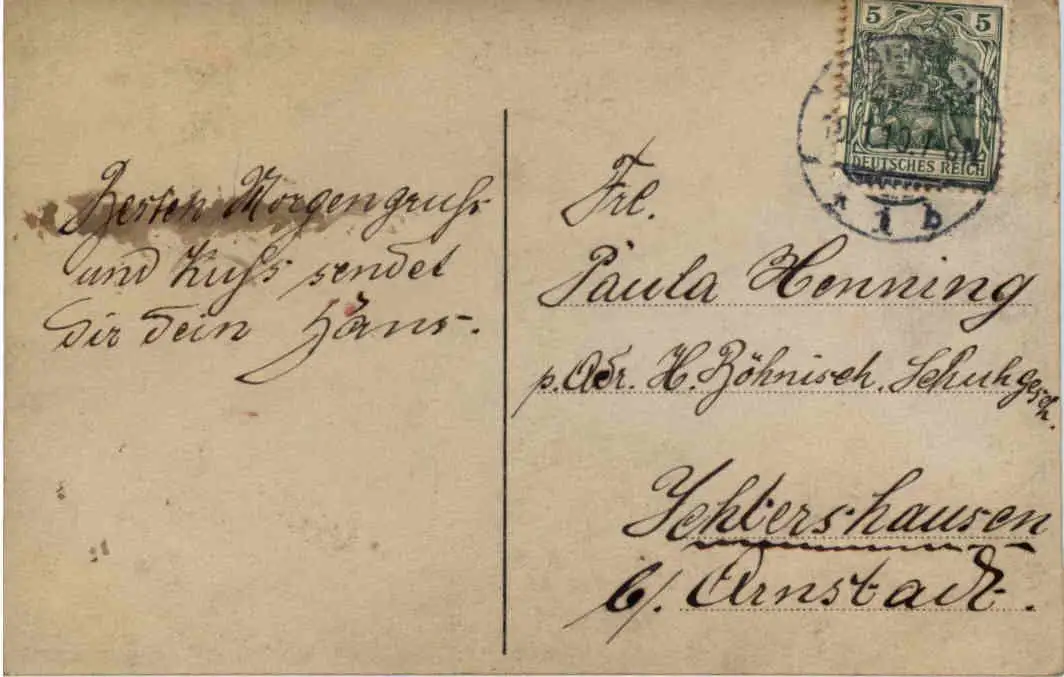 Besten Morgengruss
und Kuss sendet
Dir Dein Hans.
5 5
DEUTSCHES REICH
10.7
* 1 b
Frl.
Paula Henning
p. Adr. H. Böhnisch, Schuhgesch.
Ichtershausen
b/. Arnstadt.